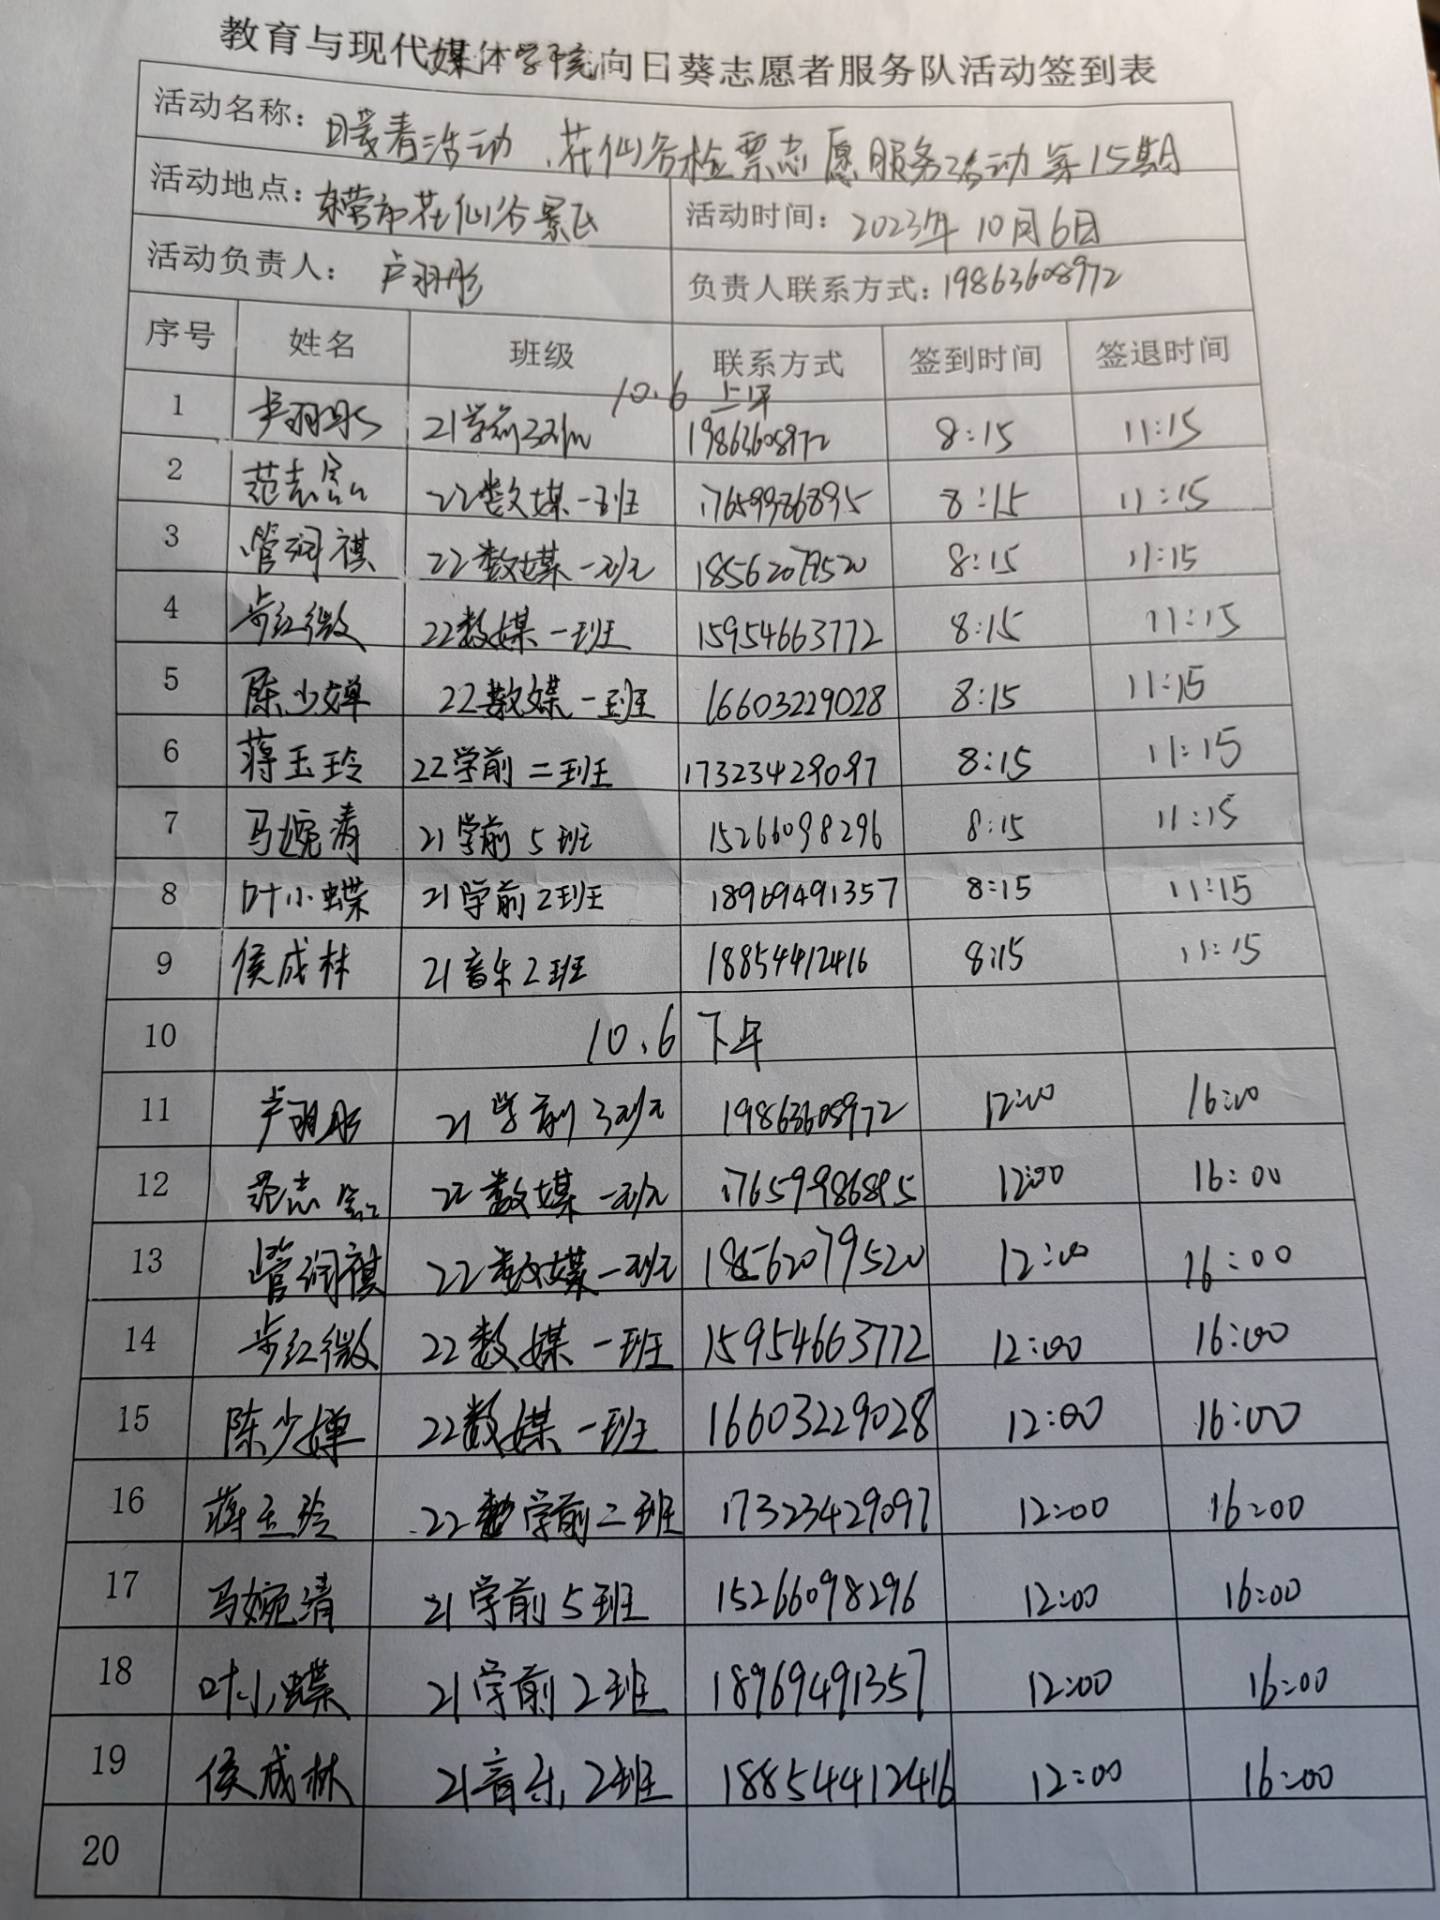 教育与现代媒体学院向日葵志愿者服务队活动签到表
活动名称： 暖青活动、花仙谷检票志愿服务活动第15期
活动地点： 东营市花仙谷景区 活动时间： 2023年10月6日
活动负责人： 卢羽彤 负责人联系方式：19863608972
序号 姓名 班级 联系方式 签到时间 签退时间
10.6 上午
1 卢羽彤 21学前3班 19863608972 8:15 11:15
2 范志宏 22数媒一班 17659986895 8:15 11:15
3 管润祺 22数媒一班 18562079520 8:15 11:15
4 步红微 22数媒一班 15954663772 8:15 11:15
5 陈少婵 22数媒一班 16603229028 8:15 11:15
6 蒋玉玲 22学前二班 17323429097 8:15 11:15
7 马婉清 21学前5班 15266098296 8:15 11:15
8 叶小蝶 21学前2班 18969491357 8:15 11:15
9 侯成林 21音乐2班 18854412416 8:15 11:15
10 10.6 下午
11 卢羽彤 21学前3班 19863608972 12:00 16:00
12 范志宏 22数媒一班 17659986895 12:00 16:00
13 管润祺 22数媒一班 18562079520 12:00 16:00
14 步红微 22数媒一班 15954663772 12:00 16:00
15 陈少婵 22数媒一班 16603229028 12:00 16:00
16 蒋玉玲 22学前二班 17323429097 12:00 16:00
17 马婉清 21学前5班 15266098296 12:00 16:00
18 叶小蝶 21学前2班 18969491357 12:00 16:00
19 侯成林 21音乐2班 18854412416 12:00 16:00
20